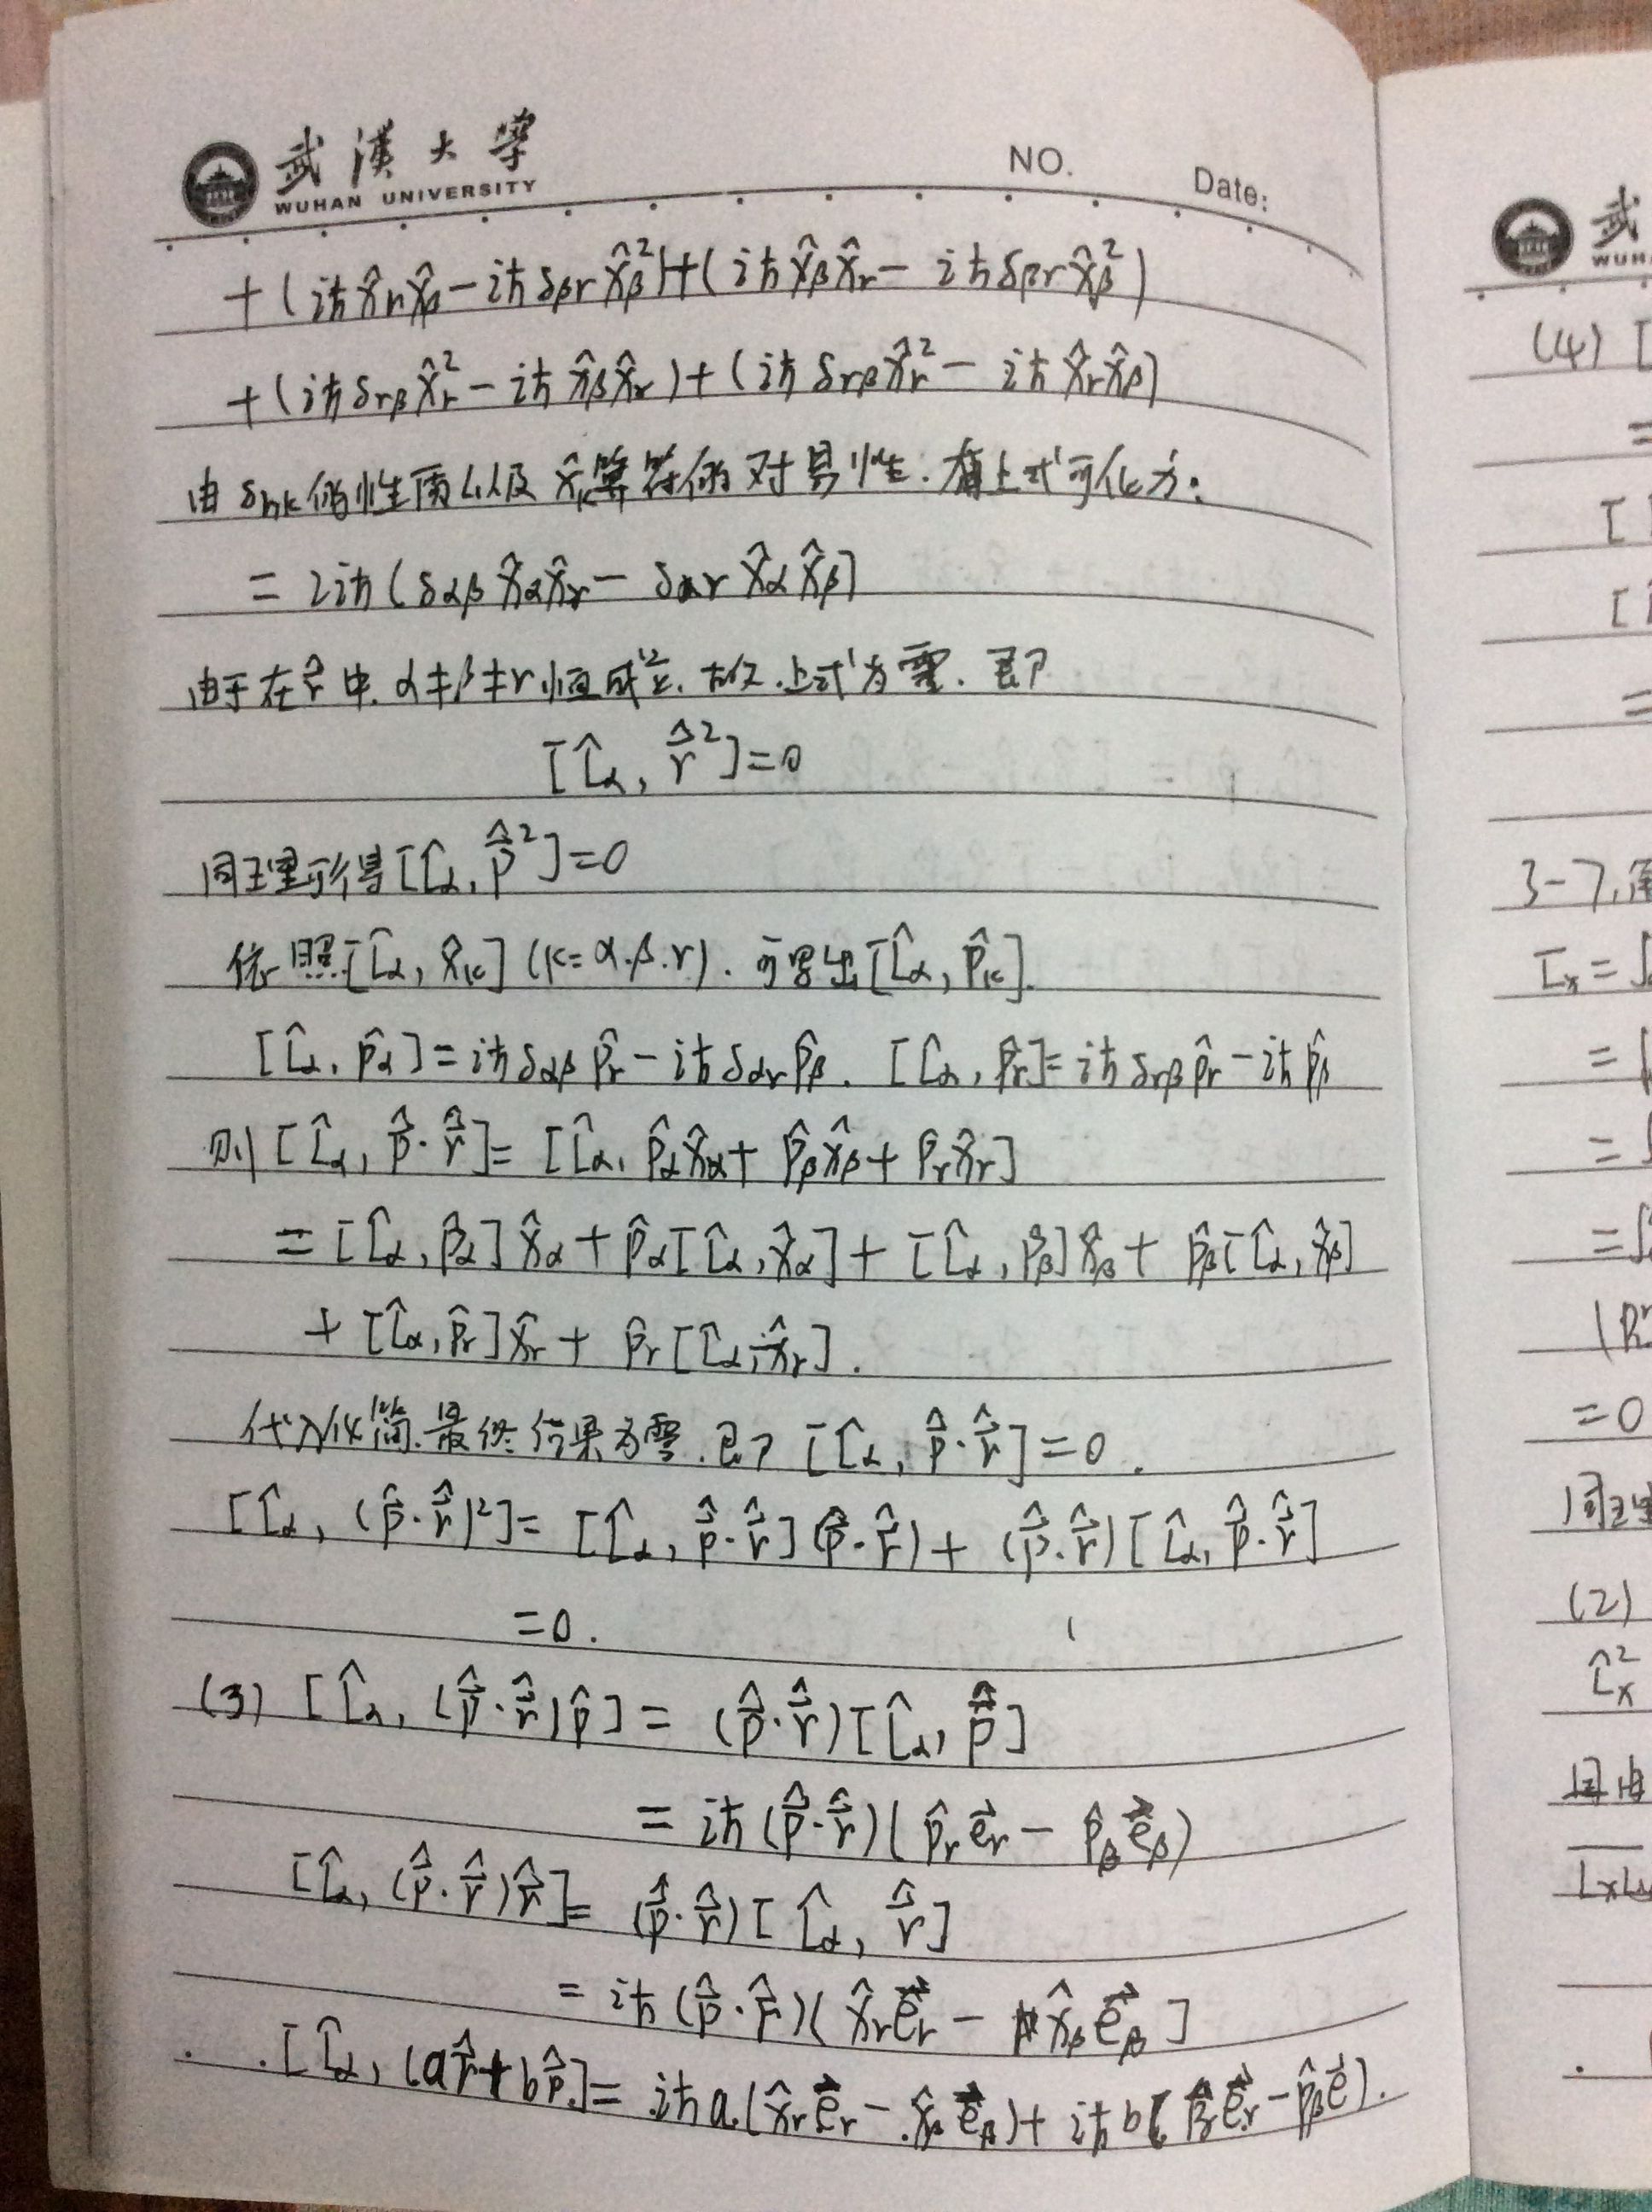 武漢大学
WUHAN UNIVERSITY
NO.
Date:
+(iħx̂_γx̂_β-iħδ_βγx̂_β²)+(iħx̂_βx̂_γ-iħδ_βγx̂_β²)
+(iħδ_γβx̂_γ²-iħx̂_βx̂_γ)+(iħδ_γβx̂_γ²-iħx̂_γx̂_β)
由δ_hk的性质以及x̂_k算符的对易性.有上式可化为:
=2iħ(δ_αβx̂_αx̂_γ-δ_αγx̂_αx̂_β)
由于在r̂中.α≠β≠γ恒成立.故.上式为零.即
[L̂_α, r̂²]=0
同理可得[L̂_α, p̂²]=0
依照[L̂_α, x̂_k](k=α.β.γ).可写出[L̂_α, p̂_k].
[L̂_α, p̂_α]=iħδ_αβp̂_γ-iħδ_αγp̂_β. [L̂_α, p̂_γ]=iħδ_γβp̂_γ-iħp̂_β
则[L̂_α, p̂·r̂]=[L̂_α, p̂_αx̂_α+p̂_βx̂_β+p̂_γx̂_γ]
=[L̂_α, p̂_α]x̂_α+p̂_α[L̂_α, x̂_α]+[L̂_α, p̂_β]x̂_β+p̂_β[L̂_α, x̂_β]
+[L̂_α, p̂_γ]x̂_γ+p̂_γ[L̂_α, x̂_γ].
代入化简.最终结果为零.即[L̂_α, p̂·r̂]=0.
[L̂_α, (p̂·r̂)²]=[L̂_α, p̂·r̂](p̂·r̂)+(p̂·r̂)[L̂_α, p̂·r̂]
=0.
(3) [L̂_α, (p̂·r̂)p̂]=(p̂·r̂)[L̂_α, p̂]
=iħ(p̂·r̂)(p̂_γe⃗_γ-p̂_βe⃗_β)
[L̂_α, (p̂·r̂)r̂]=(p̂·r̂)[L̂_α, r̂]
=iħ(p̂·r̂)(x̂_γe⃗_γ-x̂_βe⃗_β]
[L̂_α, (ar̂+bp̂]=iħa(x̂_γe⃗_γ-x̂_βe⃗_β)+iħb(p̂_γe⃗_γ-p̂_βe⃗).
武
WUH
(4) [
=
[
[
=
3-7.
L̄_x=∫
=
=
=∫
=0
同理
(2)
L̂_x²